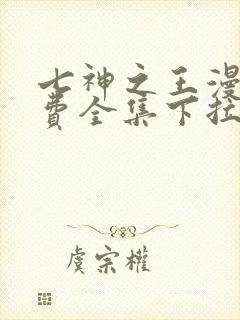 七神之王漫
费全集下拉
虞宗權